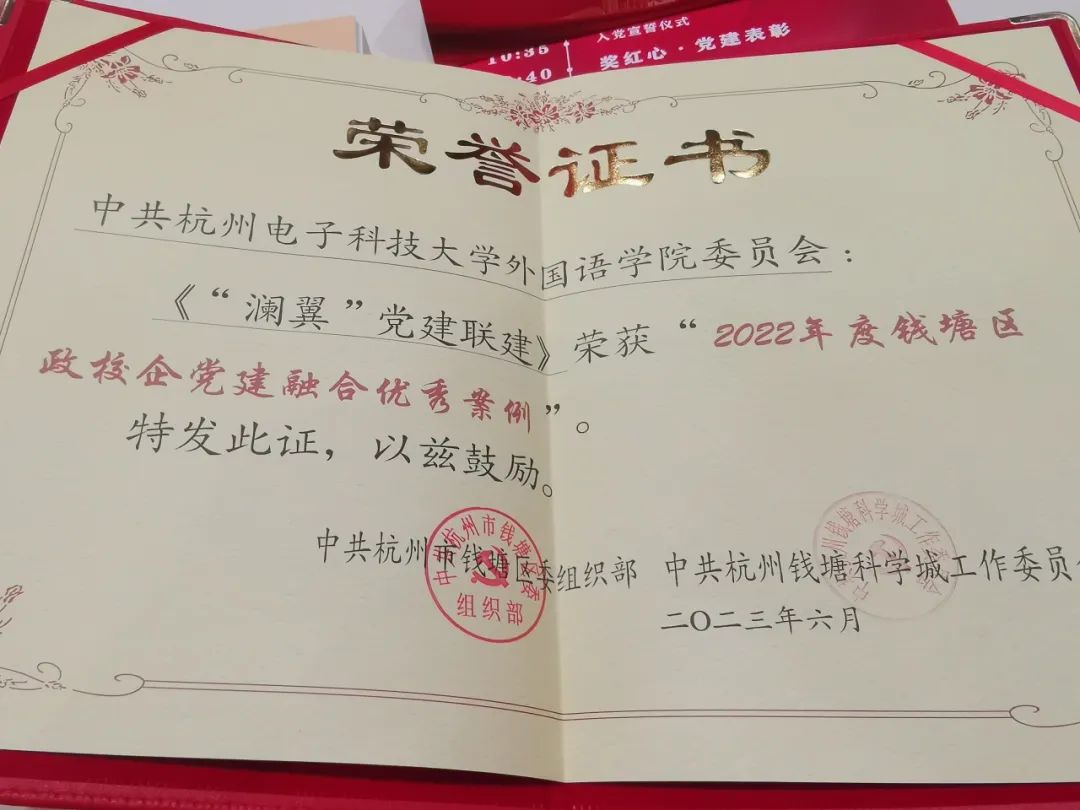 10:35
入党宣誓仪式
:40
奖红心·党建表彰
荣誉证书
中共杭州电子科技大学外国语学院委员会：
《“澜翼”党建联建》荣获“2022年度钱塘区
政校企党建融合优秀案例”。
特发此证，以兹鼓励。
中共杭州市钱塘区委组织部 中共杭州钱塘科学城工作委员会
二〇二三年六月
中共杭州市钱塘区委
组织部
州钱塘科学城工作委